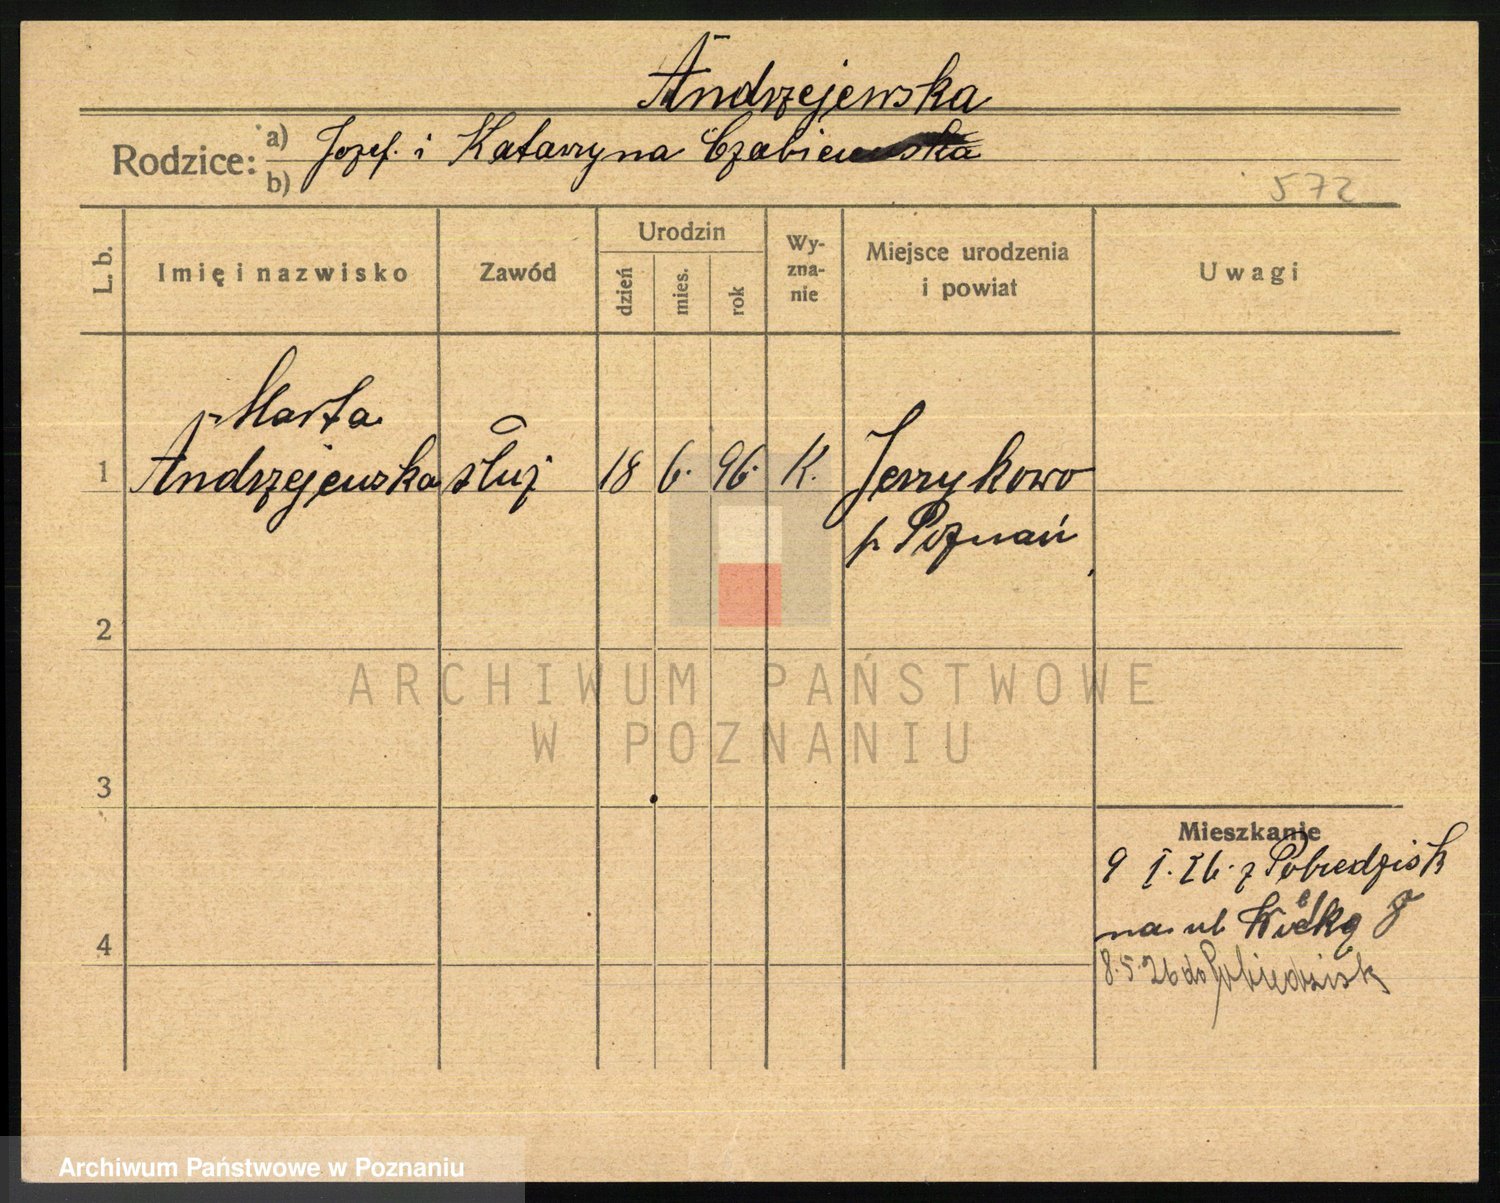 Andrzejewska
Rodzice: a) Jozef. i Katarzyna
b)
572
L. b.
Imię i nazwisko
Zawód
Urodzin
dzień
mies.
rok
Wy-
zna-
nie
Miejsce urodzenia
i powiat
Uwagi
Marta
1 Andrzejewska służ 18 6. 96. K. Jerzykowo
p Poznań
2
ARCHIWUM PAŃSTWOWE
W POZNANIU
3
Mieszkanie
9 I. 26. z Pobiedzisk
na ul 8
4
8.5.26 do Pobiedzisk
Archiwum Państwowe w Poznaniu